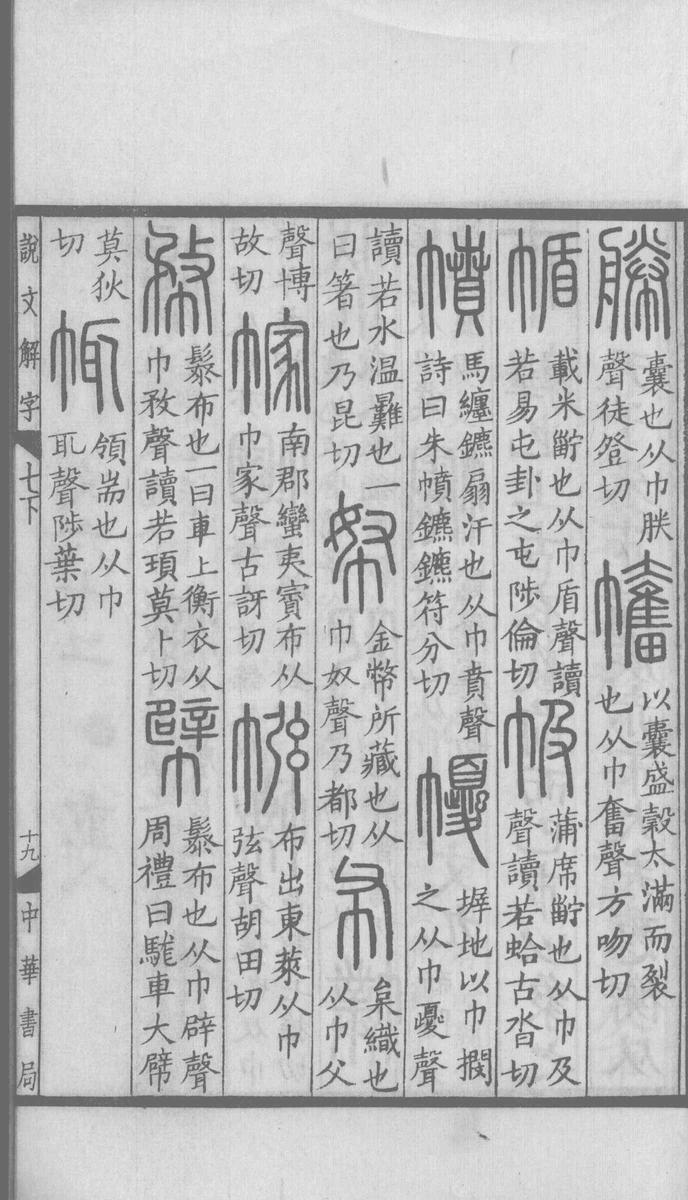 幐
囊也从巾朕
聲徒登切
𢅯
以囊盛穀太滿而裂
也从巾奮聲方吻切
㡒
載米也从巾盾聲讀
若易屯卦之屯陟倫切
㠷
蒲席也从巾及
聲讀若蛤古沓切
幩
馬纏鑣扇汗也从巾賁聲
詩曰朱幩鑣鑣符分切
墀地以巾撋
之从巾夒聲
讀若水温㬉也一
曰箸也乃昆切
帑
金幣所藏也从
巾奴聲乃都切
布
枲織也
从巾父
聲博
故切
幏
南郡蠻夷賨布从
巾家聲古訝切
㡉
布出東萊从巾
弦聲胡田切
㡔
髤布也一曰車上衡衣从
巾敄聲讀若頊莫卜切
幦
髤布也从巾辟聲
周禮曰駹車大幦
莫狄
切
㡇
領耑也从巾
耴聲陟葉切
說文解字
七下
十九
中華書局